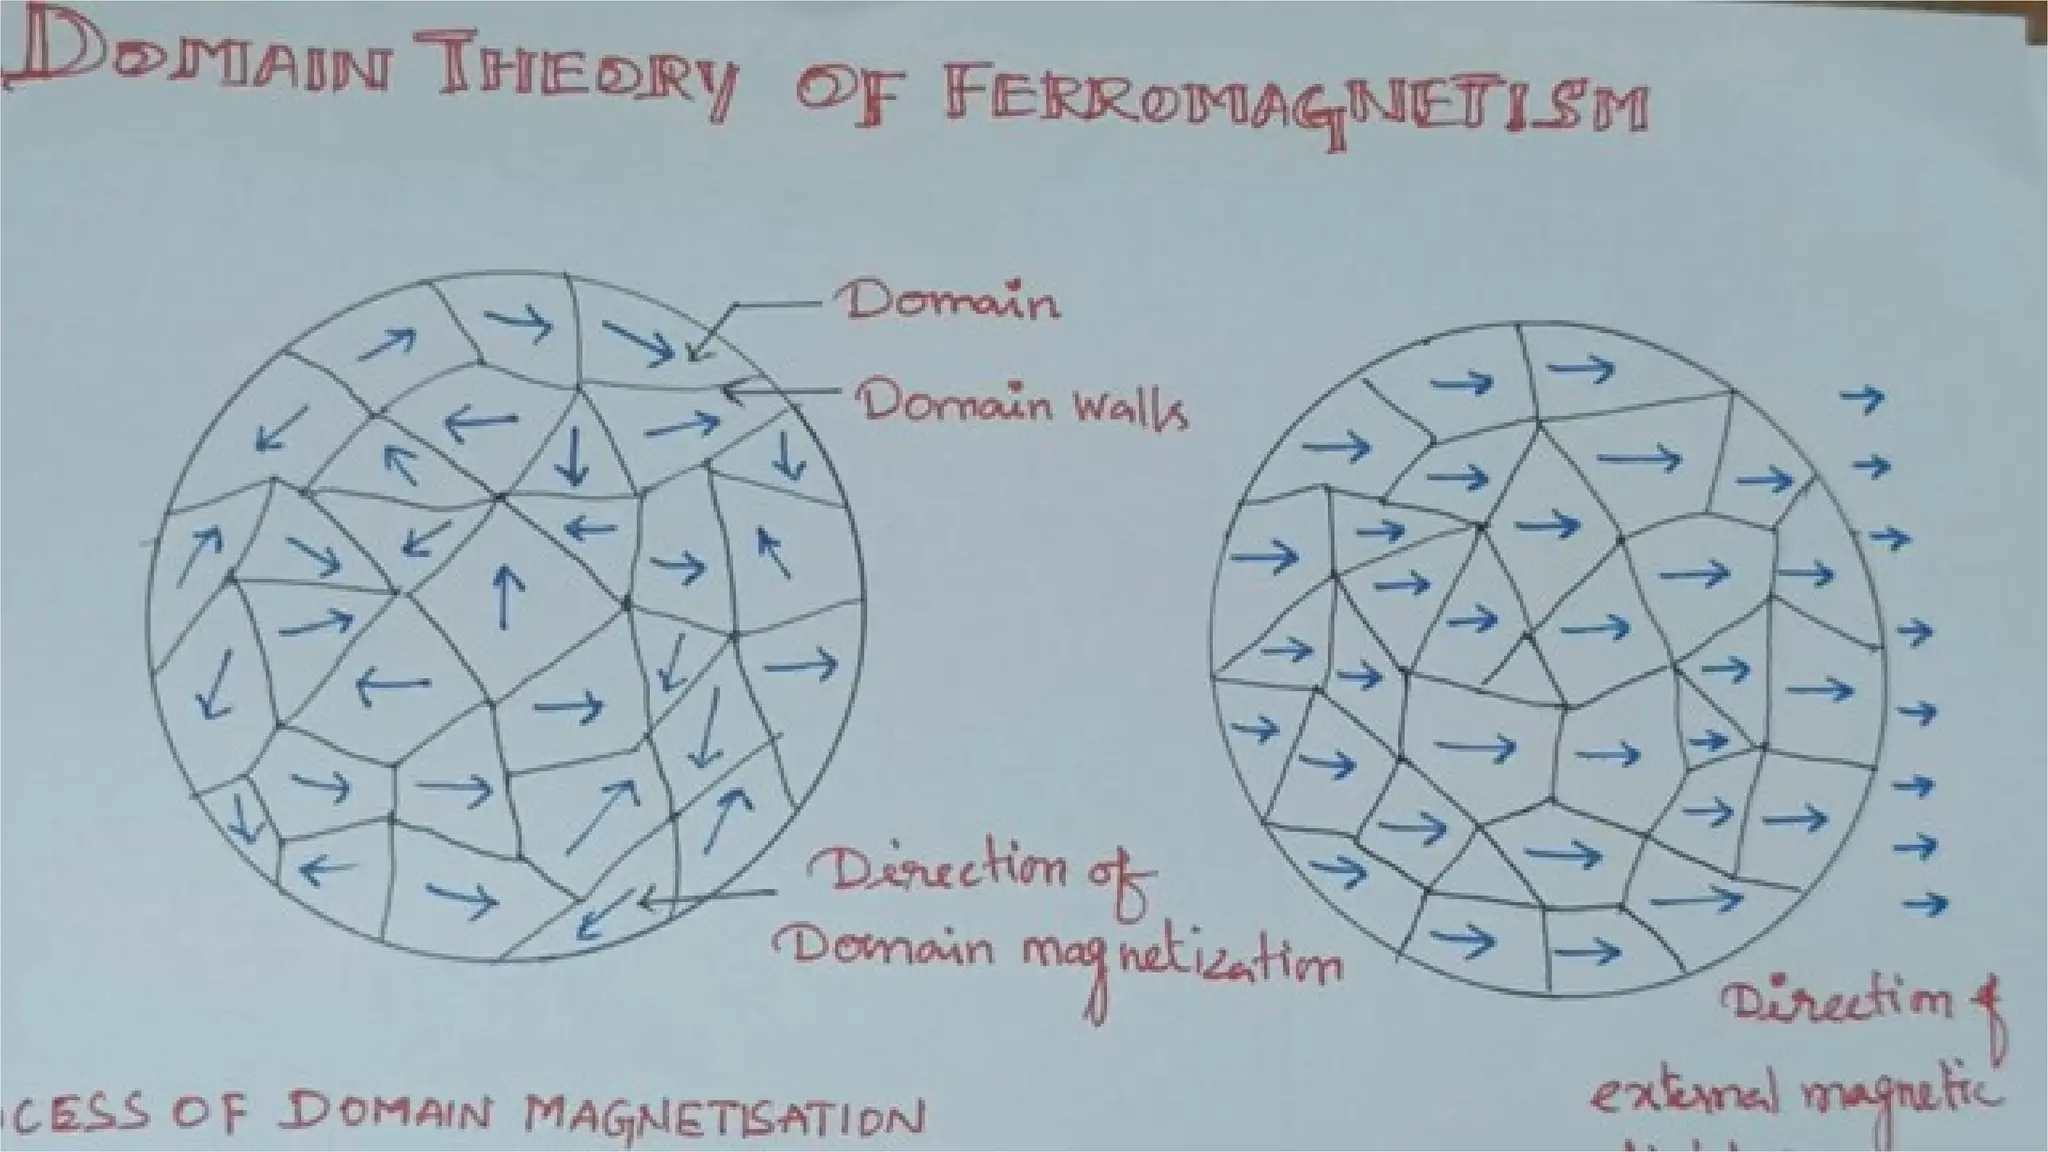 DOMAIN THEORY OF FERROMAGNETISM
Domain
Domain walls
Direction of
Domain magnetization
Direction of
external magnetic
CESS OF DOMAIN MAGNETISATION